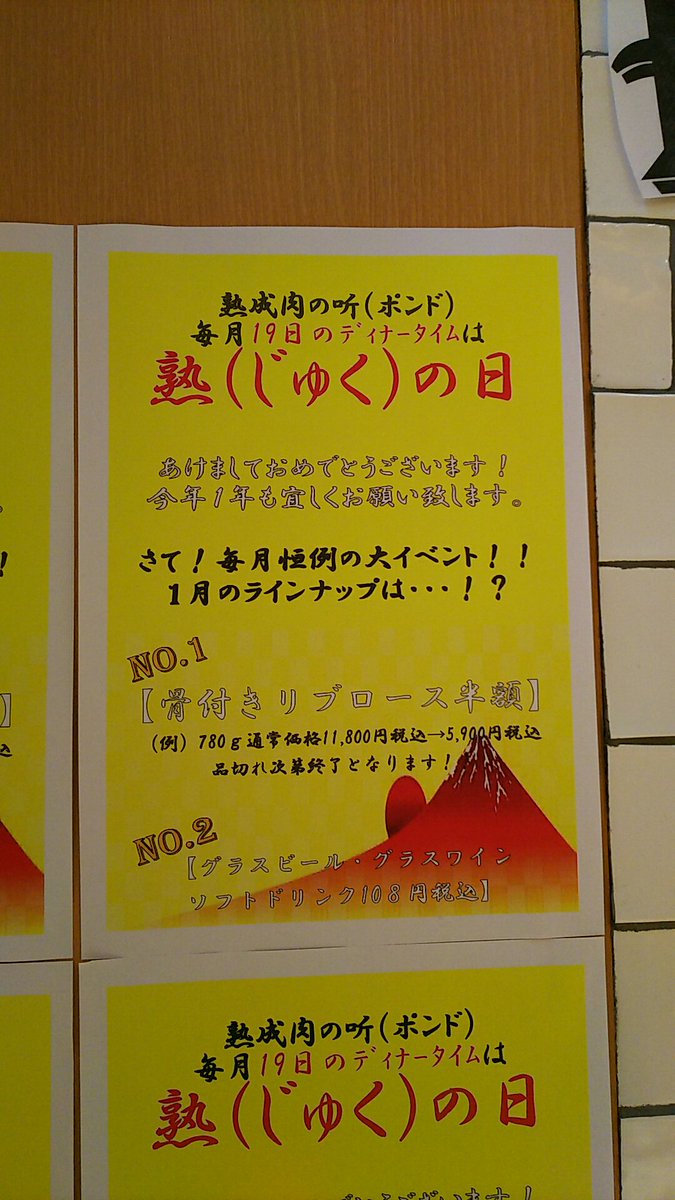 熟成肉の听(ポンド)
毎月19日のディナータイムは
熟(じゅく)の日
あけましておめでとうございます!
今年1年も宜しくお願い致します。
さて!毎月恒例の大イベント!!
1月のラインナップは・・・!?
NO.1
【骨付きリブロース半額】
(例) 780g通常価格11,800円税込→5,900円税込
品切れ次第終了となります!
NO.2
【グラスビール・グラスワイン
ソフトドリンク108円税込】
熟成肉の听(ポンド)
毎月19日のディナータイムは
熟(じゅく)の日